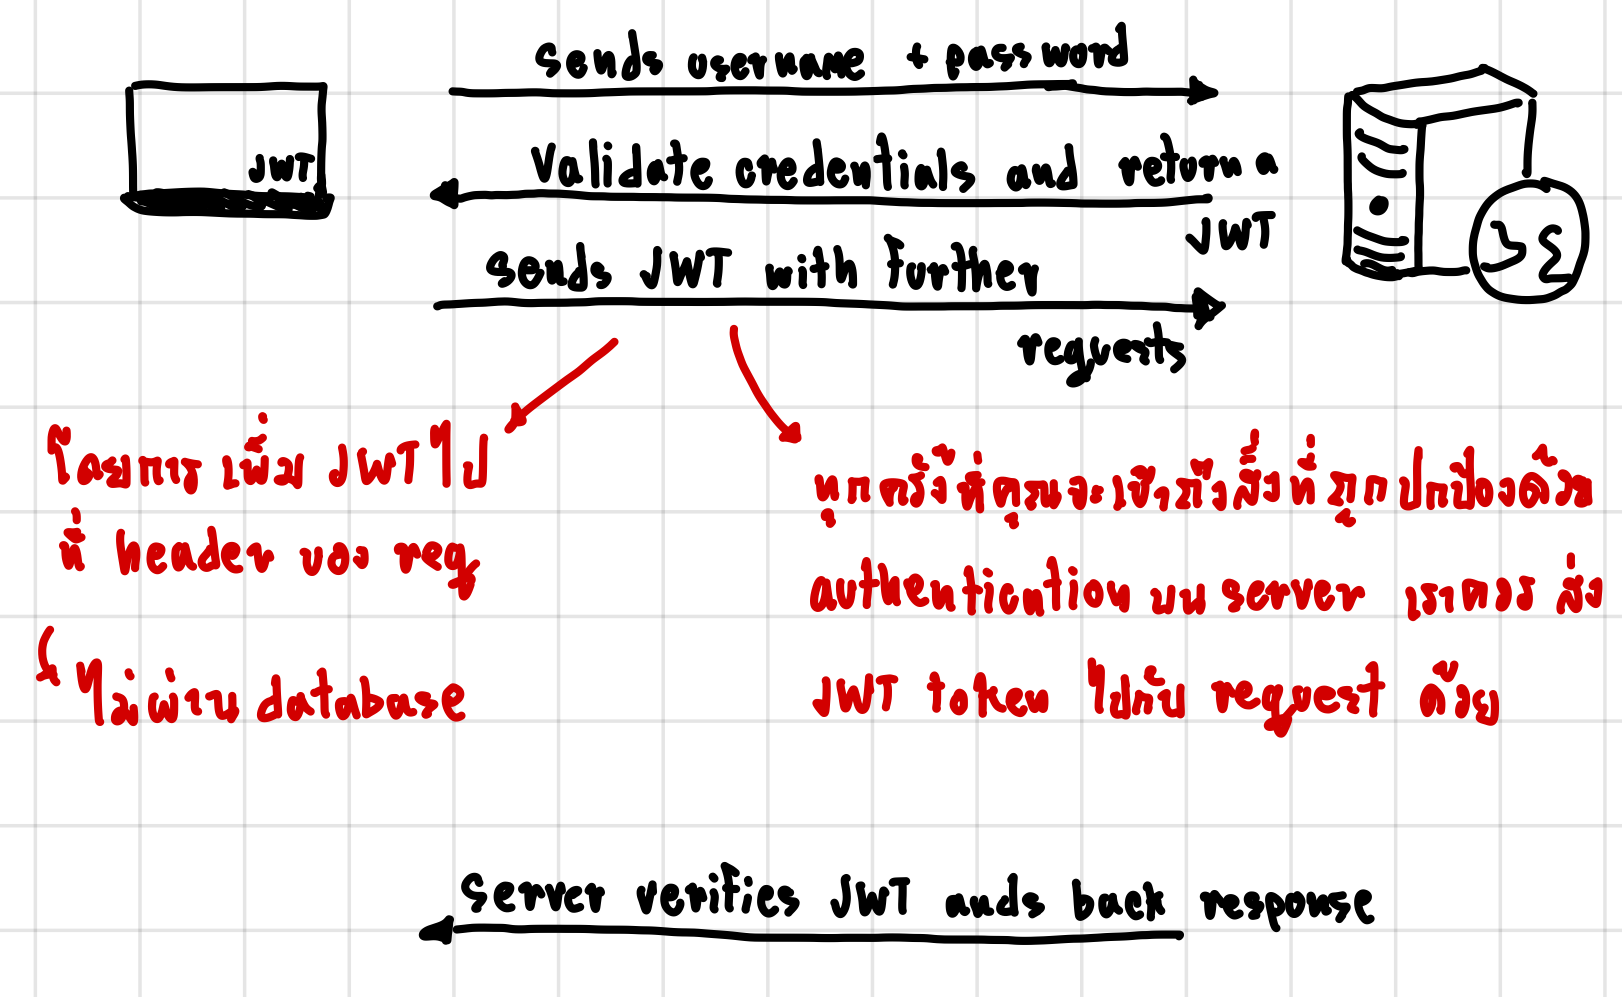 sends username + password
JWT
Validate credentials and return a
JWT
sends JWT with further
requests
โดยการ เพิ่ม JWT ไป
ที่ header ของ req
ไม่ผ่าน database
ทุกครั้งที่คุณจะเข้าถึงสิ่งที่ถูกปกป้องด้วย
authentication บน server เราควร ส่ง
JWT token ไปกับ request ด้วย
server verifies JWT ands back response